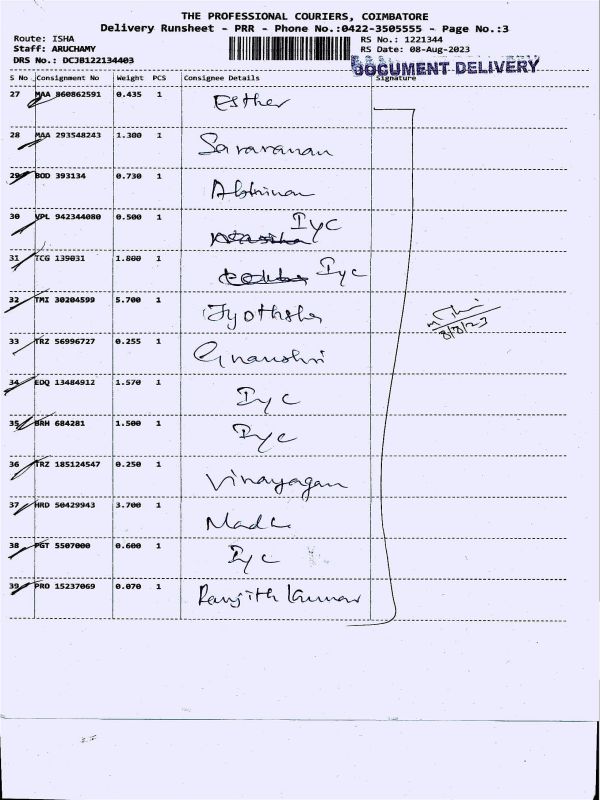 THE PROFESSIONAL COURIERS, COIMBATORE
Delivery Runsheet - PRR - Phone No.:0422-3505555 - Page No.:3
Route: ISHA
Staff: ARUCHAMY
DRS No.: DCJB122134403
RS No.: 1221344
RS Date: 08-Aug-2023
DOCUMENT DELIVERY
S No Consignment No Weight PCS Consignee Details Signature
27 MAA 860862591 0.435 1 Esther
28 MAA 293548243 1.300 1 Saravanan
29 BOD 393134 0.730 1 Abhinan
30 VPL 942344080 0.500 1 Iyc
31 TCG 139031 1.800 1 Iyc
32 TMI 30204599 5.700 1 Jyothsha
33 TRZ 56996727 0.255 1 Gnanshri
34 EDQ 13484912 1.570 1 Iyc
35 BRH 684281 1.500 1 Iyc
36 TRZ 185124547 0.250 1 Vinayagan
37 HRD 50429943 3.700 1
38 PGT 5507000 0.600 1 Iyc
39 PRO 15237069 0.070 1 Ranjith Kumar
8/8/23